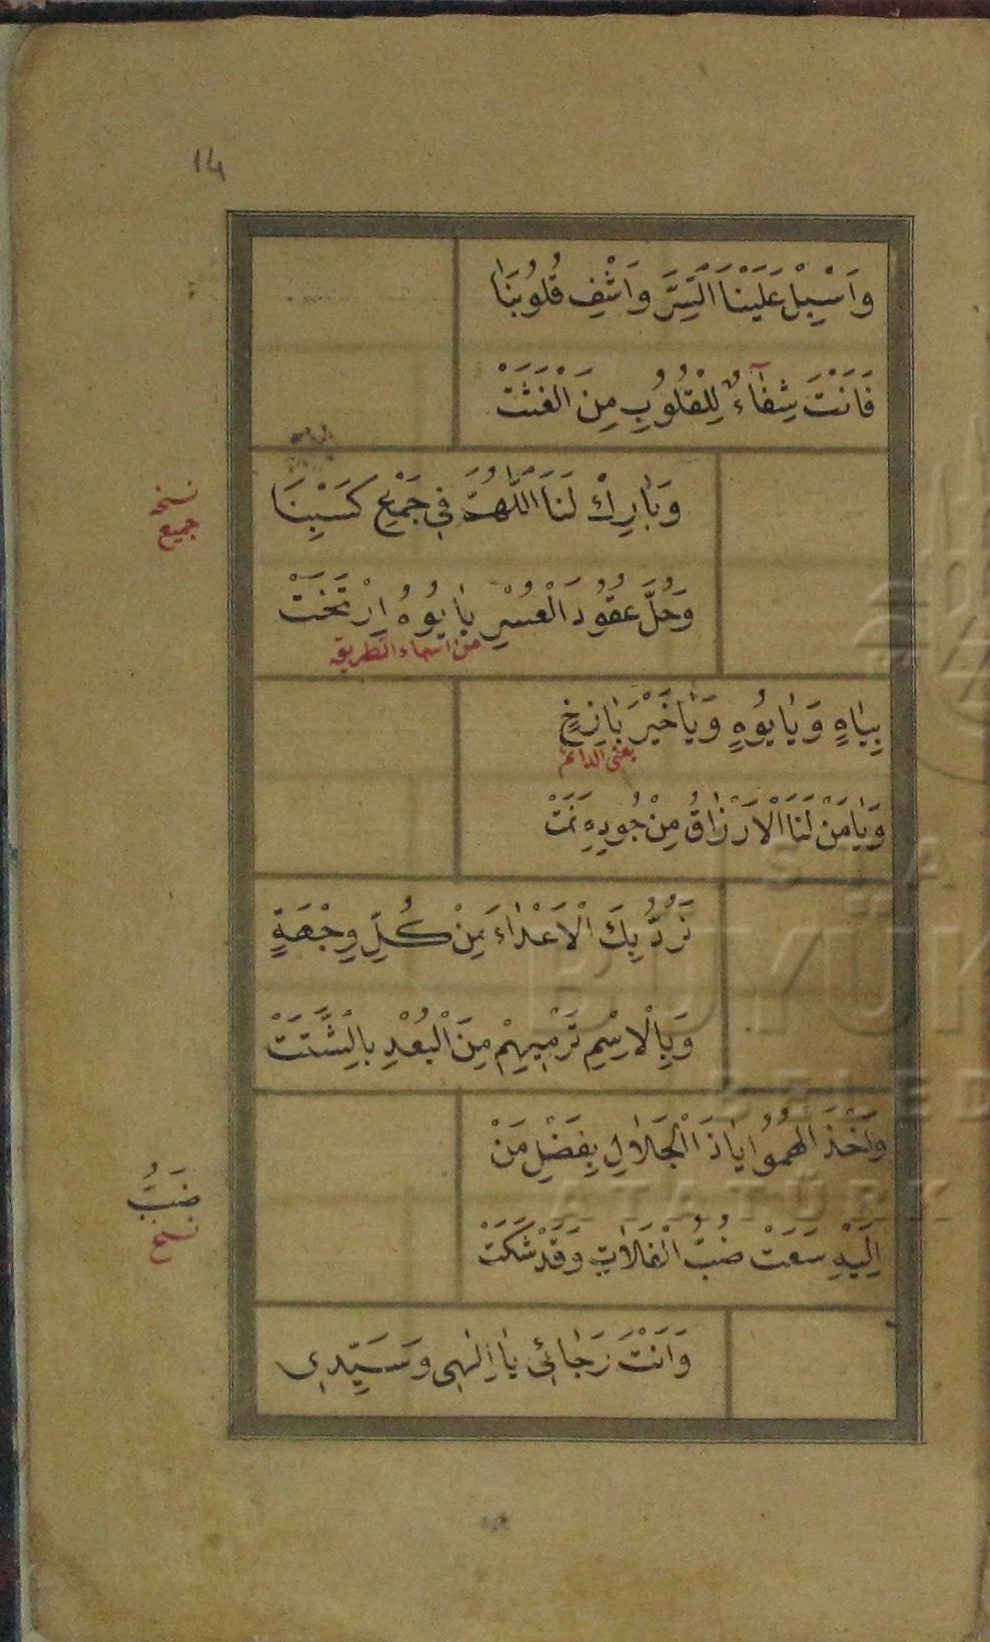 14
وَاَسْبِلْ عَلَيْنَا السَّتِرَّ وَاشْفِ قُلُوبَنَا
فَاَنْتَ شِفَآءٌ لِلْقُلُوبِ مِنَ الْغَثَتْ
وَبَارِكْ لَنَا اللّٰهُمَّ فِي جَمْعِ كَسْبِنَا
نسخه
جميع
وَحُلَّ عقُودَ الْعُسْرِ يَا يُوهُ اِرْتَخَتْ
من اسماء الطريقه
بِيَاهٍ وَيَا يُوهٍ وَيَا خَيْرَ بَازِخٍ
يعنى الدائم
وَيَا مَنْ لَنَا الْاَرْزَاقُ مِنْ جُودِهِ نَمَتْ
نَرُدُّ بِكَ الْاَعْدَاءَ مِنْ كُلِّ وِجْهَةٍ
وَبِالْاِسْمِ تَرْمِيهِمْ مِنَ الْبُعْدِ بِالشَّتَتْ
وَاَخْذَ الْهُمُوا يَا ذَا الْجَلَالِ بِفَضْلِ مَنْ
اِلَيْهِ سَعَتْ ضُبُّ الْفَلَاتِ وَقَدْ شَكَتْ
ضَبُّ
نسخ
وَاَنْتَ رَجَائِي يَا اِلٰهِي وَسَيِّدِي